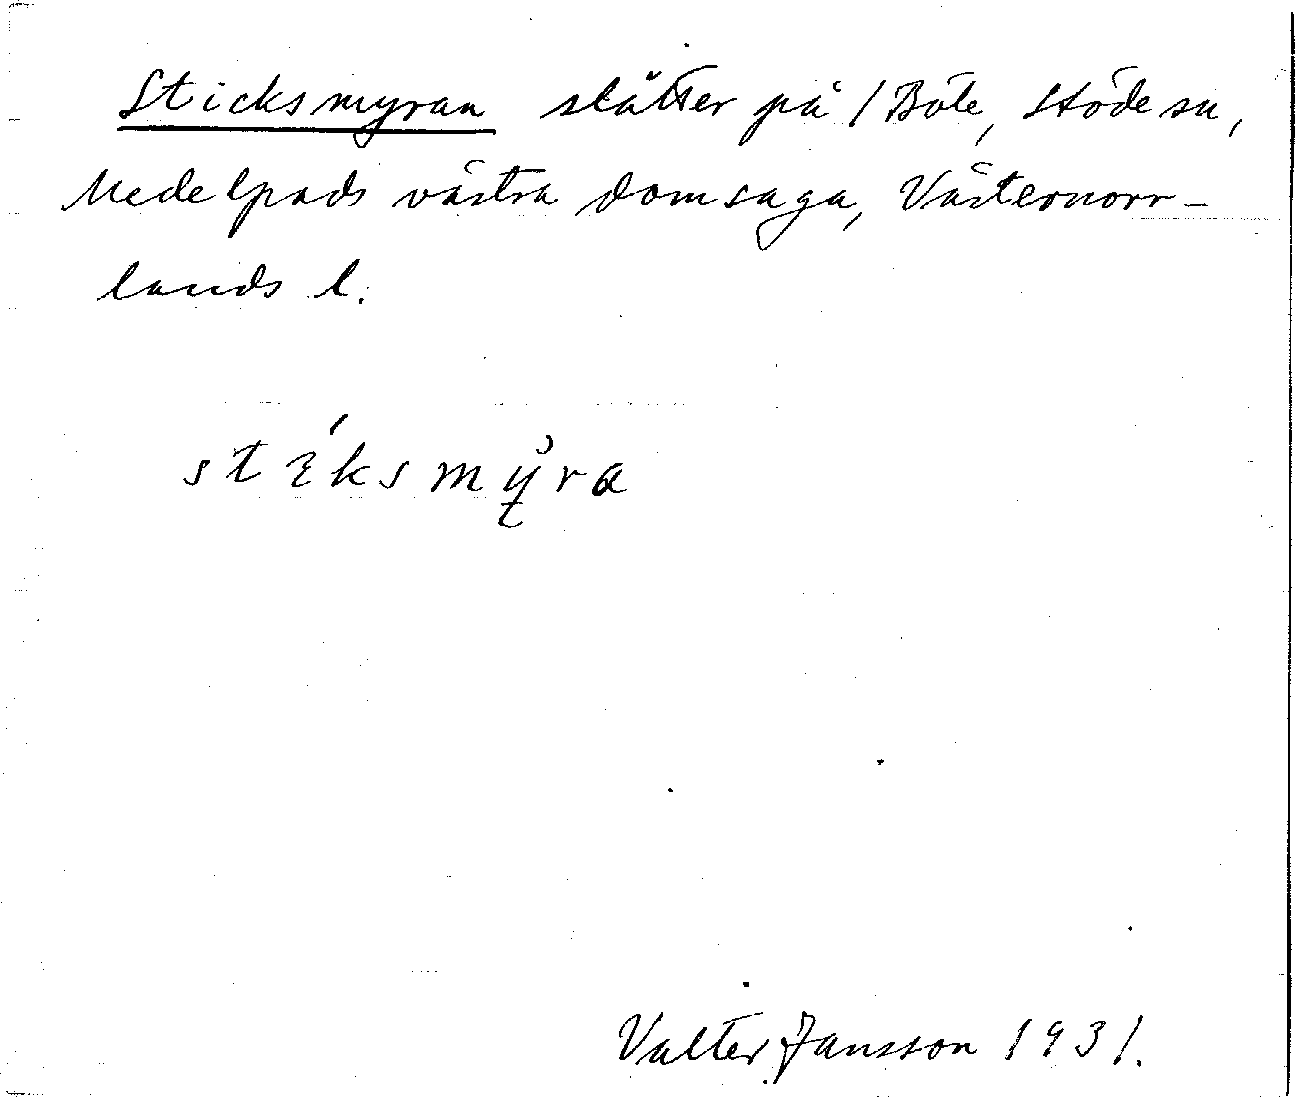 Sticksmyran slåtter på / Böle, Stöde sn,
Medelpads västra domsaga, Västernorr-
lands l.
stíksmy̆ra
Valter Jansson 1931.